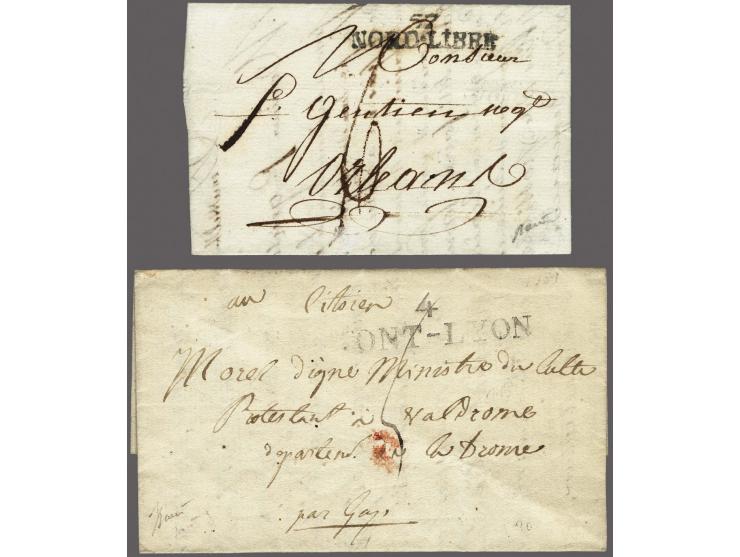 NORD-LIBRE
Monsieur
Gentien negt
Orleans
au Citoien
4
ONT-LYON
Morel digne Ministre du Culte
Protestant a valdrome
departemt de la drome
par Gap